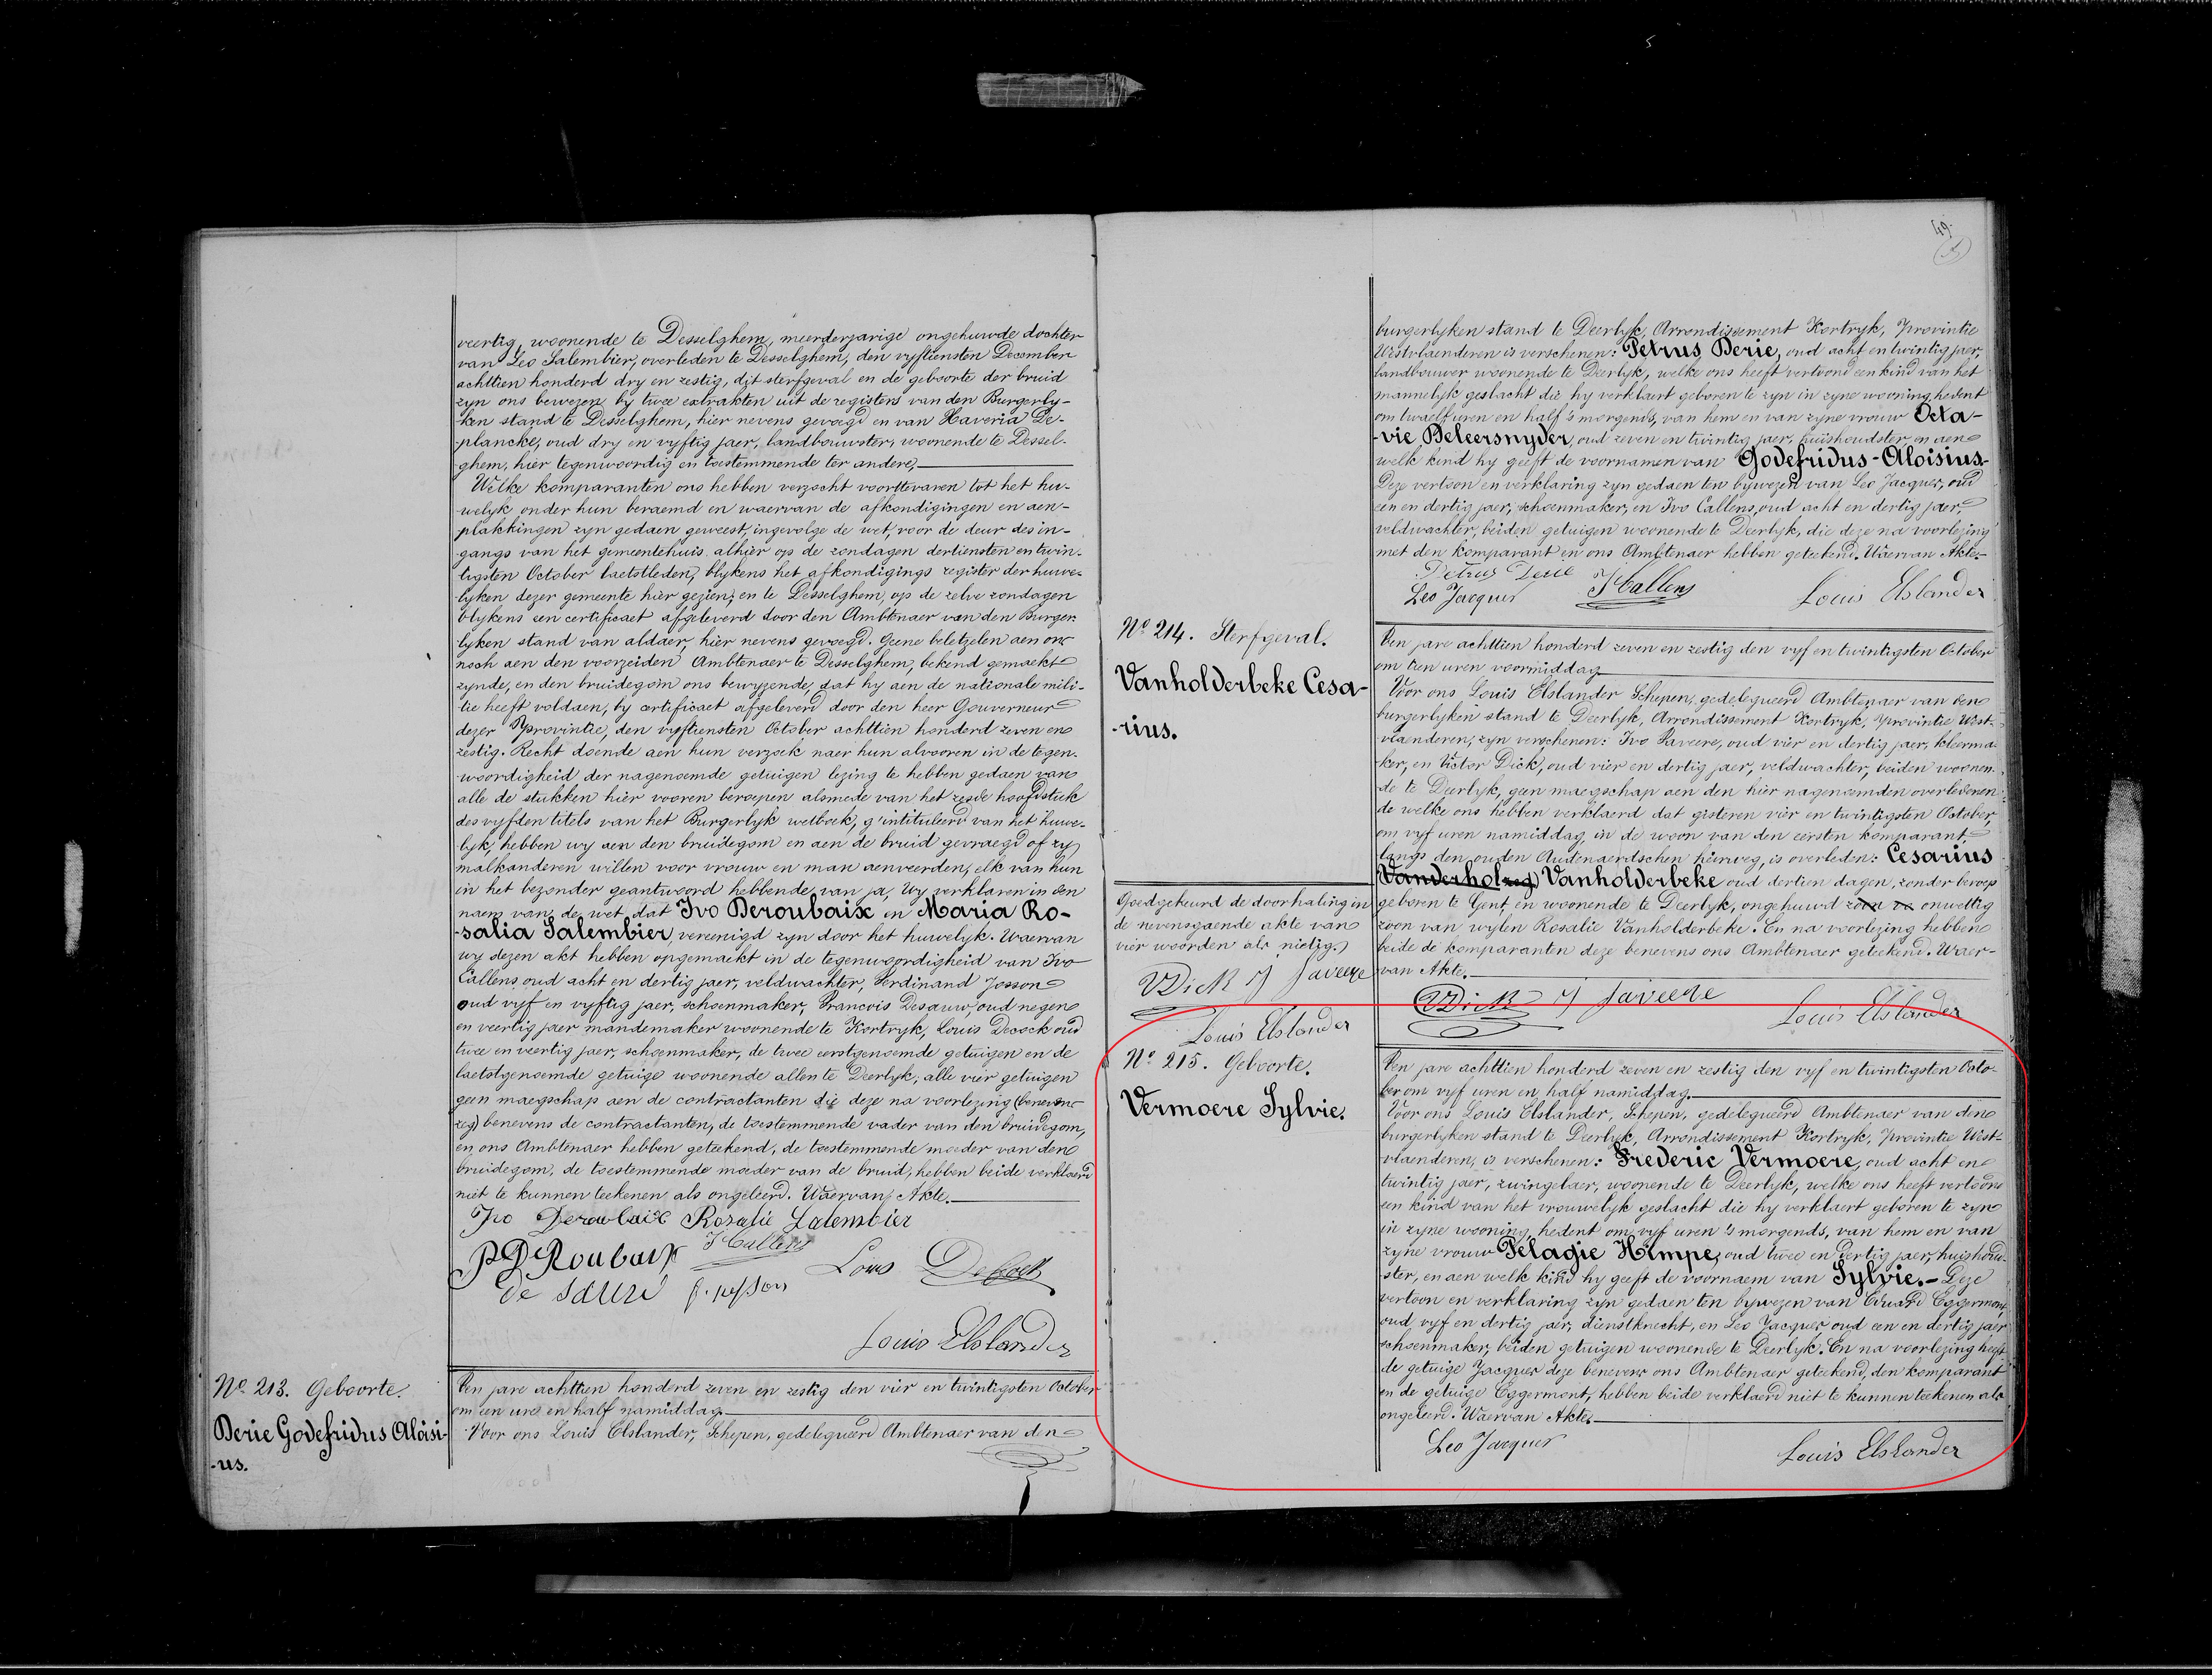 veertig, woonende te Desselghem, meerderjarige ongehuwde dochter
van Leo Salembier, overleden te Desselghem, den vyftiensten December
achttien honderd dry en zestig, dit sterfgeval en de geboorte der bruid
zyn ons bewezen by twee extrakten uit de registers van den Burgerly-
ken stand te Desselghem, hier nevens gevoegd en van Haveria De-
plancke, oud dry en vyftig jaer, landbouwster, woonende te Dessel-
ghem, hier tegenwoordig en toestemmende ter andere,
Welke komparanten ons hebben verzocht voorttevaren tot het hu-
welyk onder hun beraemd en waervan de afkondigingen en aen-
plakkingen zyn gedaen geweest, ingevolge de wet, voor de deur des in-
gangs van het gemeentehuis alhier op de zondagen dertiensten en twin-
tigsten October laetstleden, blykens het afkondigings register der huwe-
lyken dezer gemeente hier gezien, en te Desselghem, op de zelve zondagen
blykens een certificaet afgeleverd door den Ambtenaer van den Burger-
lyken stand van aldaer, hier nevens gevoegd. Geene beletzelen aen ons
noch aen den voorzeiden Ambtenaer te Desselghem, bekend gemaekt
zynde, en den bruidegom ons bewyzende, dat hy aen de nationale mili-
tie heeft voldaen, by certificaet afgeleverd door den heer Gouverneur
dezer Provintie, den vyftiensten October achttien honderd zeven en
zestig. Recht doende aen hun verzoek naer hun alvooren in de tegen-
woordigheid der nagenoemde getuigen lezing te hebben gedaen van
alle de stukken hier vooren beroepen alsmede van het zesde hoofdstuk
des vyfden titels van het Burgerlyk wetboek, g'intituleerd van het huwe-
lyk, hebben wy aen den bruidegom en aen de bruid gevraegd of zy
malkanderen willen voor vrouw en man aenveerden, elk van hun
in het bezonder geantwoord hebbende van ja, wy verklaren in den
naem van de wet dat Ivo Deroubaix en Maria Ro-
-salia Salembier, vereenigd zyn door het huwelyk. Waervan
wy dezen akt hebben opgemaekt in de tegenwoordigheid van Ivo
Callens, oud acht en dertig jaer, veldwachter, Ferdinand Josson
oud vyf en vyftig jaer, schoenmaker, Francois Desauw, oud negen
en veertig jaer mandemaker woonende te Kortryk, Louis Decock oud
twee en veertig jaer, schoenmaker, de twee eerstgenoemde getuigen en de
laetstgenoemde getuige woonende allen te Deerlyk, alle vier getuigen
geen maegschap aen de contractanten die deze na voorlezing (benevens
zeg) benevens de contractanten, de toestemmende vader van den bruidegom,
en ons Ambtenaer hebben geteekend, de toestemmende moeder van den
bruidegom, de toestemmende moeder van de bruid, hebben beide verklaerd
niet te kunnen teekenen, als ongeleerd. Waervan Akte.
Ivo Deroubaix Rosalie Salembier
P D Roubaix J Callens Louis Decock
de sauw f. josson
Louis Elslander
No 213. Geboorte.
Derie Godefridus Aloisi-
-us.
Den jare achttien honderd zeven en zestig den vier en twintigsten October
om een ure en half namiddag.
Voor ons Louis Elslander, Schepen, gedelegueerd Ambtenaer van den
49.
burgerlyken stand te Deerlyk, Arrondissement Kortryk, Provintie
Westvlaenderen is verschenen: Petrus Derie, oud acht en twintig jaer,
landbouwer woonende te Deerlyk, welke ons heeft vertoond een kind van het
mannelyk geslacht die hy verklaert geboren te zyn in zyne wooning, hedent
om twaelf uren en half 's morgends, van hem en van zyne vrouw Octa-
-vie Deleersnyder, oud zeven en twintig jaer, huishoudster, en aen
welk kind hy geeft de voornamen van Godefridus-Aloisius.
Deze vertoon en verklaring zyn gedaen ten bywezen van Leo Jacques, oud
een en dertig jaer, schoenmaker, en Ivo Callens, oud acht en dertig jaer,
veldwachter, beiden getuigen woonende te Deerlyk, die deze na voorlezing
met den komparant en ons Ambtenaer hebben geteekend. Waervan Akte.
Petrus Derie
Leo Jacques J Callens Louis Elslander
No 214. Sterfgeval.
Vanholderbeke Cesa-
-rius.
Den jare achttien honderd zeven en zestig den vyf en twintigsten October
om tien uren voormiddag
Voor ons Louis Elslander Schepen, gedelegueerd Ambtenaer van den
burgerlyken stand te Deerlyk, Arrondissement Kortryk, Provintie West-
vlaenderen, zyn verschenen: Ivo Saveere, oud vier en dertig jaer, kleerma-
ker, en Victor Dick, oud vier en dertig jaer, veldwachter, beiden woonen-
de te Deerlyk, geen maegschap aen den hier nagenoemden overledenen
de welke ons hebben verklaerd dat gisteren vier en twintigsten October,
om vyf uren namiddag, in de woon van den eersten komparant,
langs den ouden Audenaerdschen heirweg, is overleden: Cesarius
Vanderhol zeg) Vanholderbeke oud dertien dagen, zonder beroep
geboren te Gent en woonende te Deerlyk, ongehuwd zoon va onwettig
zoon van wylen Rosalie Vanholderbeke. En na voorlezing hebben
beide de komparanten deze benevens ons Ambtenaer geteekend. Waer-
van Akte.
VDick J Saveere Louis Elslander
Goedgekeurd de doorhaling in
de nevensgaende akte van
vier woorden als nietig.
VDick J Saveere
Louis Elslander
No 215. Geboorte.
Vermoere Sylvie.
Den jare achttien honderd zeven en zestig den vyf en twintigsten Octo-
ber om vyf uren en half namiddag.
Voor ons Louis Elslander, Schepen, gedelegueerd Ambtenaer van den
burgerlyken stand te Deerlyk, Arrondissement Kortryk, Provintie West-
vlaenderen, is verschenen: Frederic Vermoere, oud acht en
twintig jaer, zwingelaer, woonende te Deerlyk, welke ons heeft vertoond
een kind van het vrouwelyk geslacht die hy verklaert geboren te zyn
in zyne wooning, hedent om vyf uren 's morgends, van hem en van
zyne vrouw Pelagie Himpe, oud twee en dertig jaer, huishoud-
ster, en aen welk kind hy geeft de voornaem van Sylvie.- Deze
vertoon en verklaring zyn gedaen ten bywezen van Eduard Eggermont,
oud vyf en dertig jaer, dienstknecht, en Leo Jacques oud een en dertig jaer
schoenmaker, beiden getuigen woonende te Deerlyk. En na voorlezing heeft
de getuige Jacques deze benevens ons Ambtenaer geteekend, den komparant
en de getuige Eggermont, hebben beide verklaerd niet te kunnen teekenen als
ongeleerd. Waervan Akte.
Leo Jacques Louis Elslander